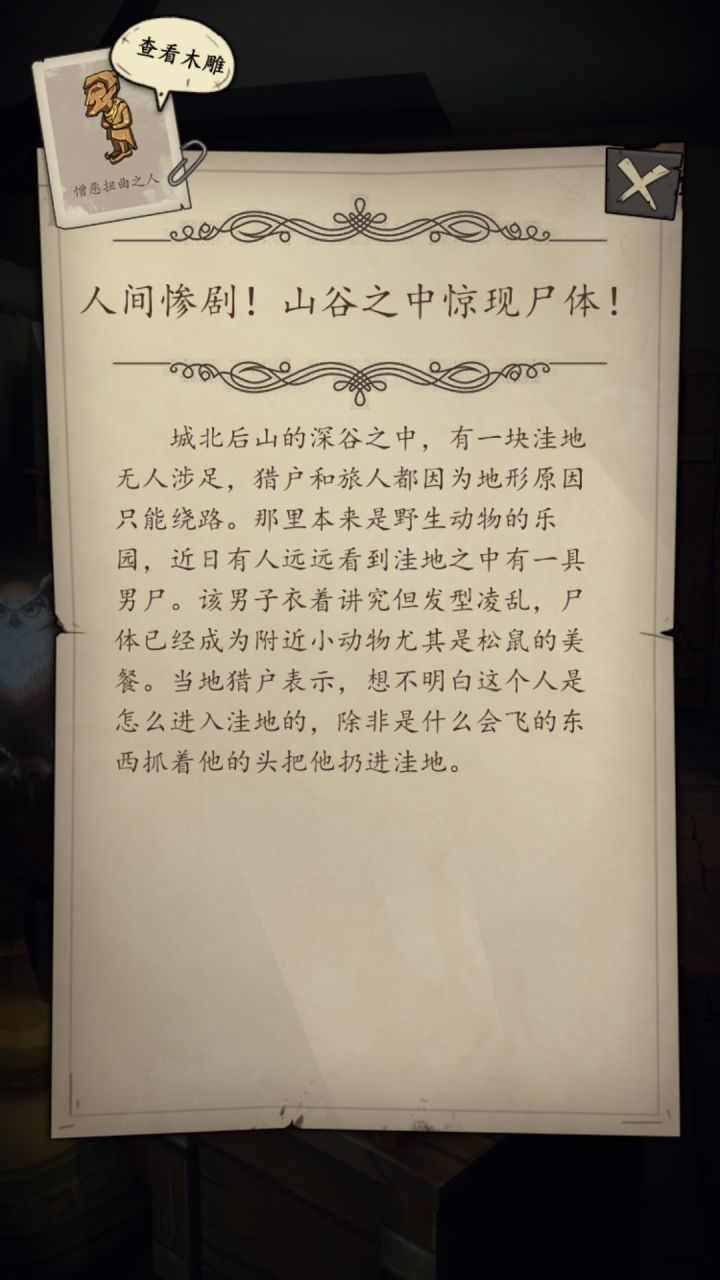 查看木雕
憎恶扭曲之人
人间惨剧！山谷之中惊现尸体！
城北后山的深谷之中，有一块洼地
无人涉足，猎户和旅人都因为地形原因
只能绕路。那里本来是野生动物的乐
园，近日有人远远看到洼地之中有一具
男尸。该男子衣着讲究但发型凌乱，尸
体已经成为附近小动物尤其是松鼠的美
餐。当地猎户表示，想不明白这个人是
怎么进入洼地的，除非是什么会飞的东
西抓着他的头把他扔进洼地。